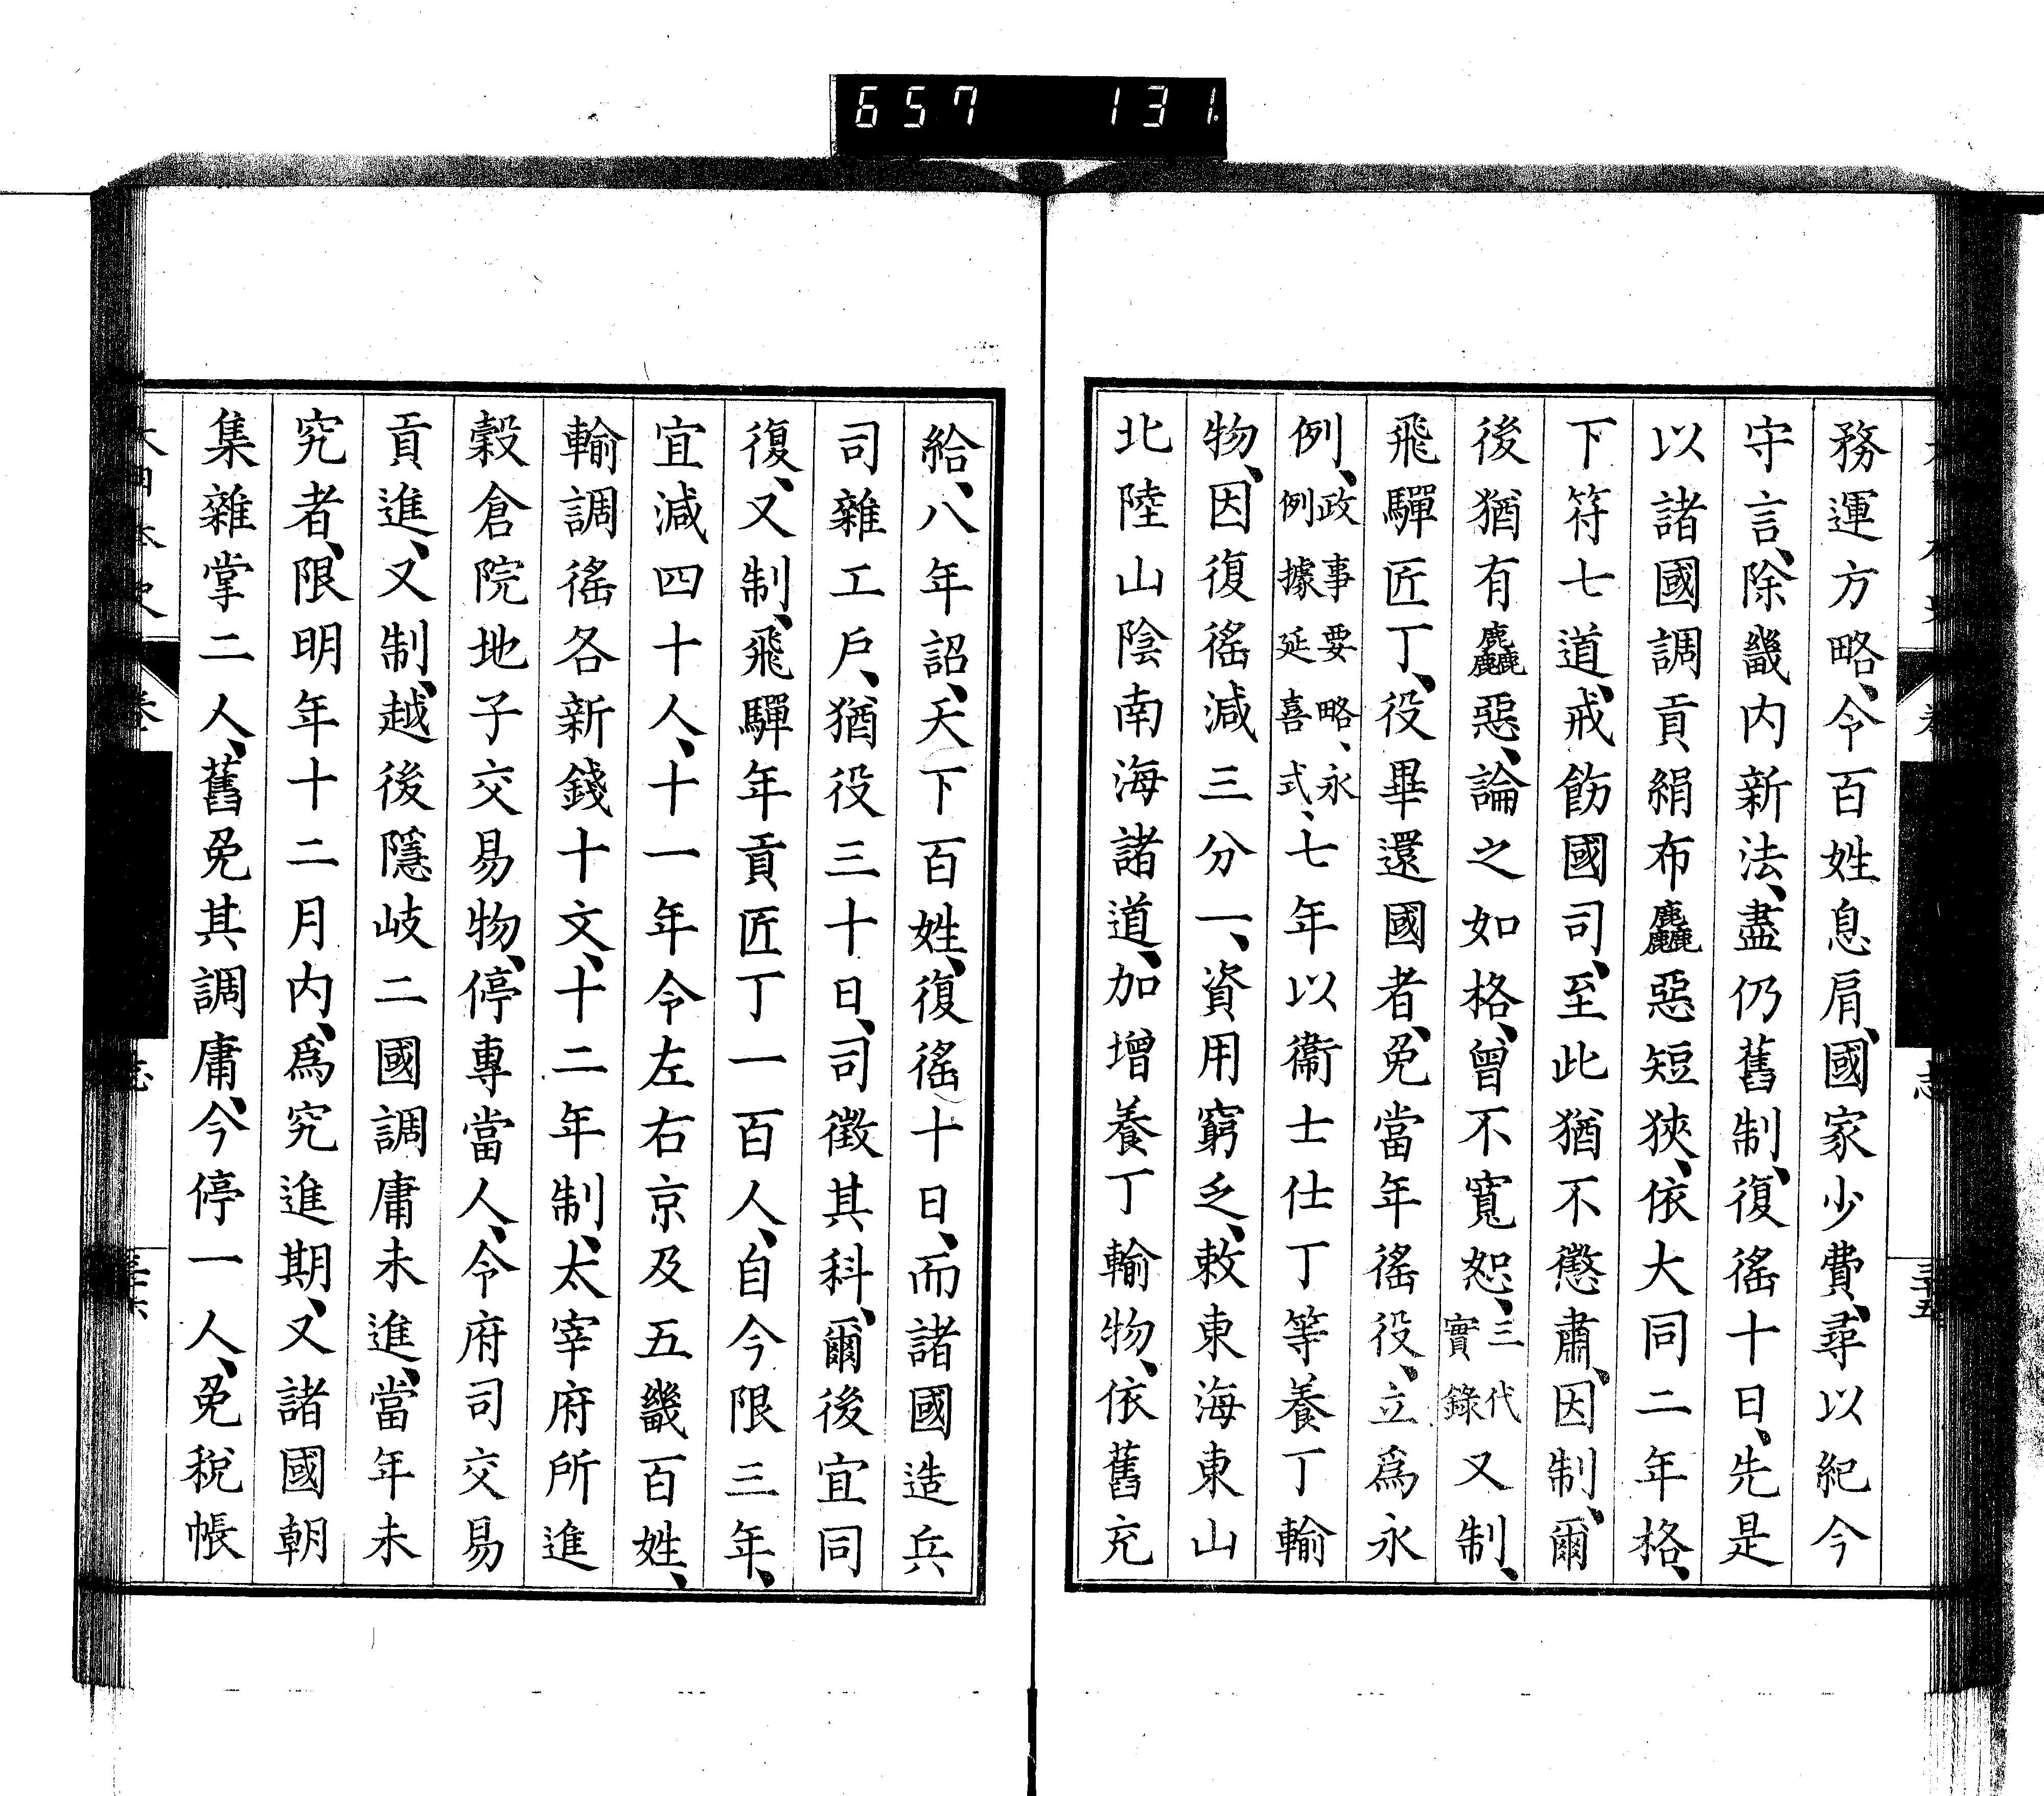 657 131.
務運方略、令百姓息肩、國家少費、尋以紀今
守言、除畿内新法、盡仍舊制、復徭十日、先是
以諸國調貢絹布麤惡短狹、依大同二年格、
下符七道、戒飭國司、至此猶不懲肅、因制、爾
後猶有麤惡、論之如格、曾不寬恕、三代實錄又制、
飛驒匠丁、役畢還國者、免當年徭役、立爲永
例、政事要略、永例據延喜式、七年以衞士仕丁等養丁輸
物、因復徭減三分一、資用窮乏、敕東海東山
北陸山陰南海諸道、加增養丁輸物、依舊充
給、八年詔、天下百姓、復徭十日、而諸國造兵
司雜工戶、猶役三十日、司徵其科、爾後宜同
復、又制、飛驒年貢匠丁一百人、自今限三年、
宜減四十人、十一年令左右京及五畿百姓、
輸調徭各新錢十文、十二年制、太宰府所進
穀倉院地子交易物、停專當人、令府司交易
貢進、又制、越後隱岐二國調庸未進、當年未
究者、限明年十二月内、爲究進期、又諸國朝
集雜掌二人、舊免其調庸、今停一人、免稅帳